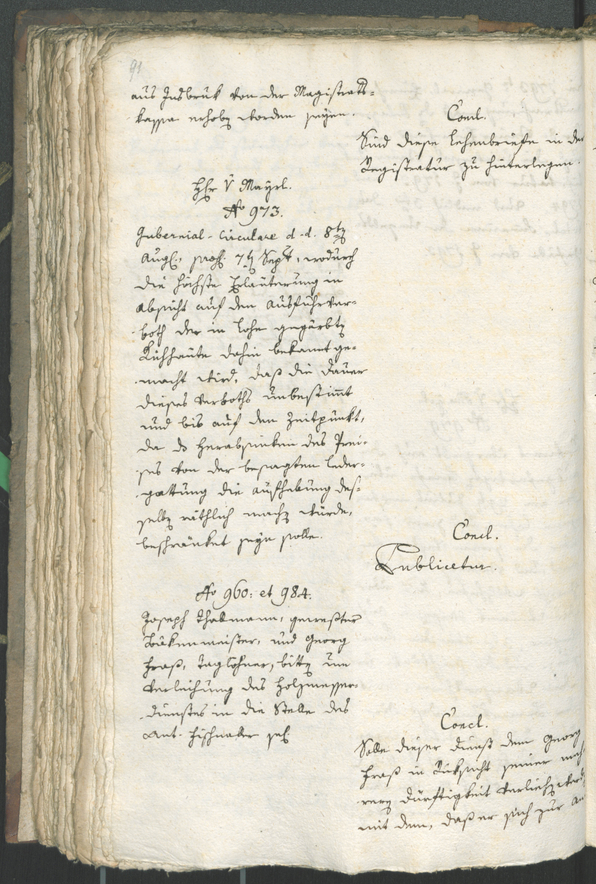 91.
aus Insbruk von der Magistrats-
kassa erhoben worden seyen.
Concl.
Sind diese Lehenbriefe in der
Registratur zu hinterlegen.
Hr v Mayrl.
No 973.
Gubernial-Circulare d. d. 8ten
Augt: praes. 7ten Sept, wodurch
die höchste Erläuterung in
Absicht auf den Ausfuhrver-
both der in Lohe gegärbten
Kühhäute dahin bekannt ge-
macht wird, daß die Dauer
dieses Verboths unbestimt
und bis auf den Zeitpunkt,
da das Herabsinken des Prei-
ses von der besagten Leder-
gattung die Aufhebung des-
selben räthlich machen würde,
beschränket seyn solle.
Concl.
Publicetur.
No 960: et 984.
Joseph Thalmann, gewester
Bükenmeister, und Georg
Fraß, Taglöhner, bitten um
Verleihung des Holzmesser-
dienstes in die Stelle des
Ant. sel
Concl.
Solle dieser Dienst dem Georg
Fraß in Rüksicht seiner meh-
rern Dürftigkeit verliehen werden
mit dem, daß er sich zur An